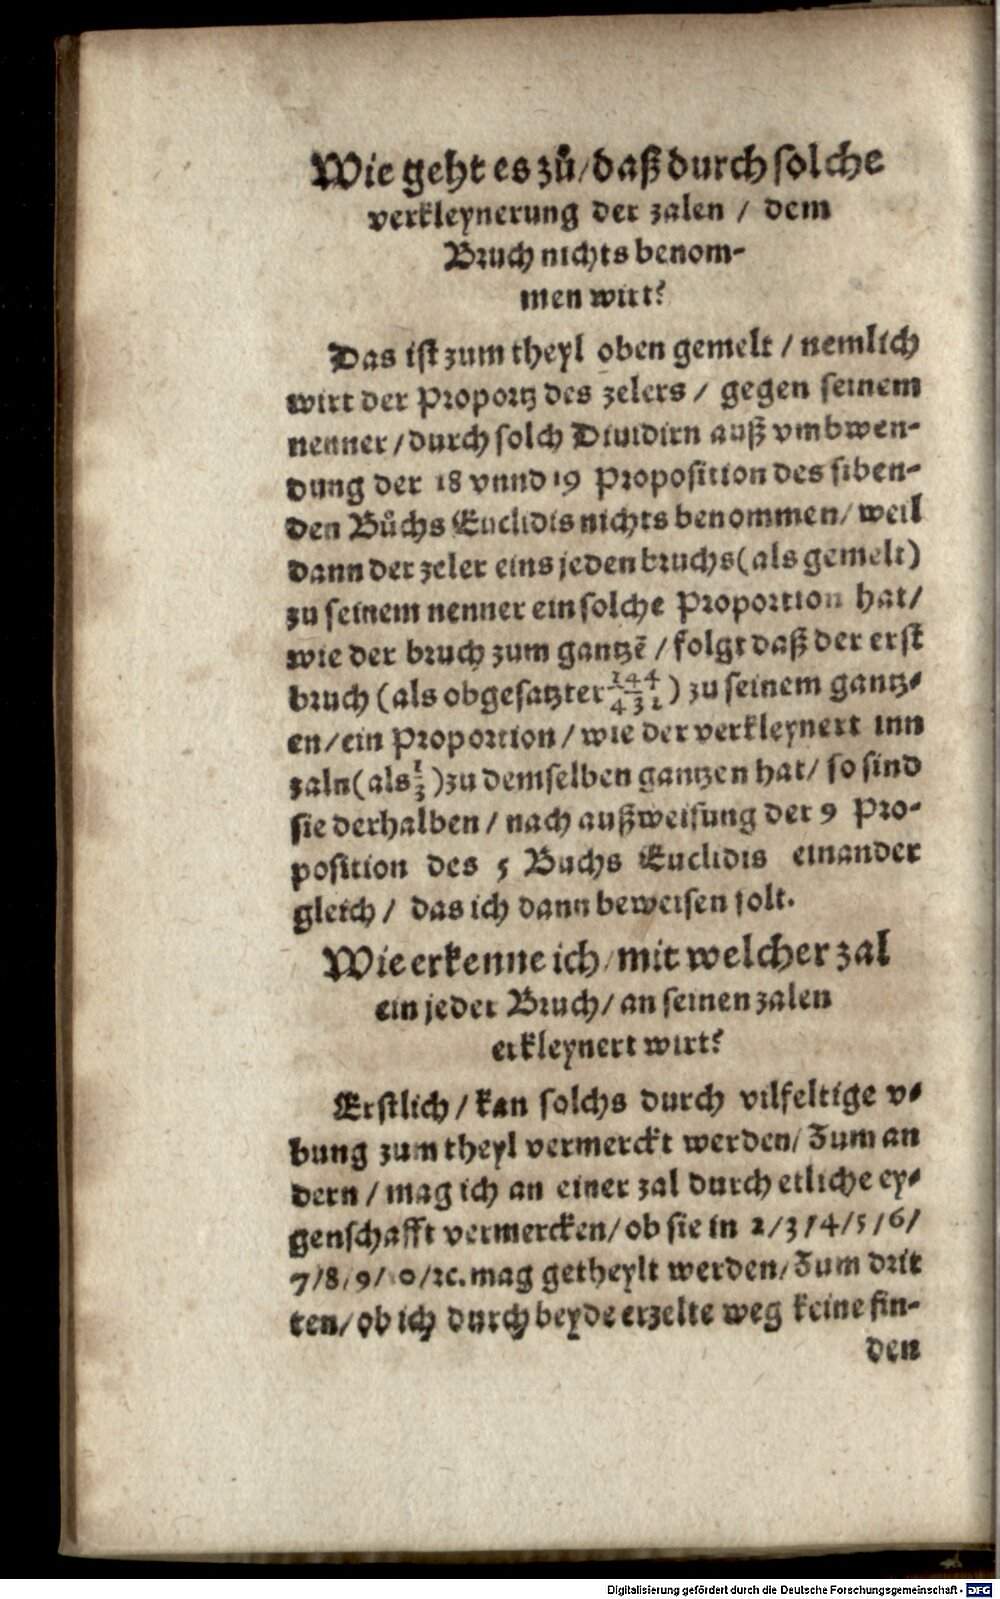 Wie geht es zů/daß durch solche
verkleynerung der zalen / dem
Bruch nichts benom-
men wirt?
Das ist zum theyl oben gemelt / nemlich
wirt der Proportz des zelers / gegen seinem
nenner/durch solch Diuidirn auß vmbwen-
dung der 18 vnnd 19 Proposition des siben-
den Bůchs Euclidis nichts benommen/ weil
dann der zeler eins jeden bruchs(als gemelt)
zu seinem nenner ein solche Proportion hat/
wie der bruch zum gantzē / folgt daß der erst
bruch (als obgesatzter 144/432) zu seinem gantz-
en/ein Proportion/wie der verkleynert inn
zaln(als 1/3)zu demselben gantzen hat/ so sind
sie derhalben/ nach außweisung der 9 Pro-
position des 5 Buchs Euclidis einander
gleich/ das ich dann beweisen solt.
Wie erkenne ich/mit welcher zal
ein jeder Bruch/an seinen zalen
erkleynert wirt?
Erstlich/kan solchs durch vilfeltige v-
bung zum theyl vermerckt werden/Zum an
dern/mag ich an einer zal durch etliche ey-
genschafft vermercken/ob sie in 2/3/4/5/6/
7/8/9/10/ꝛc.mag getheylt werden/Zum drit
ten/ob ich durch beyde erzelte weg keine fin-
den
Digitalisierung gefördert durch die Deutsche Forschungsgemeinschaft - DFG